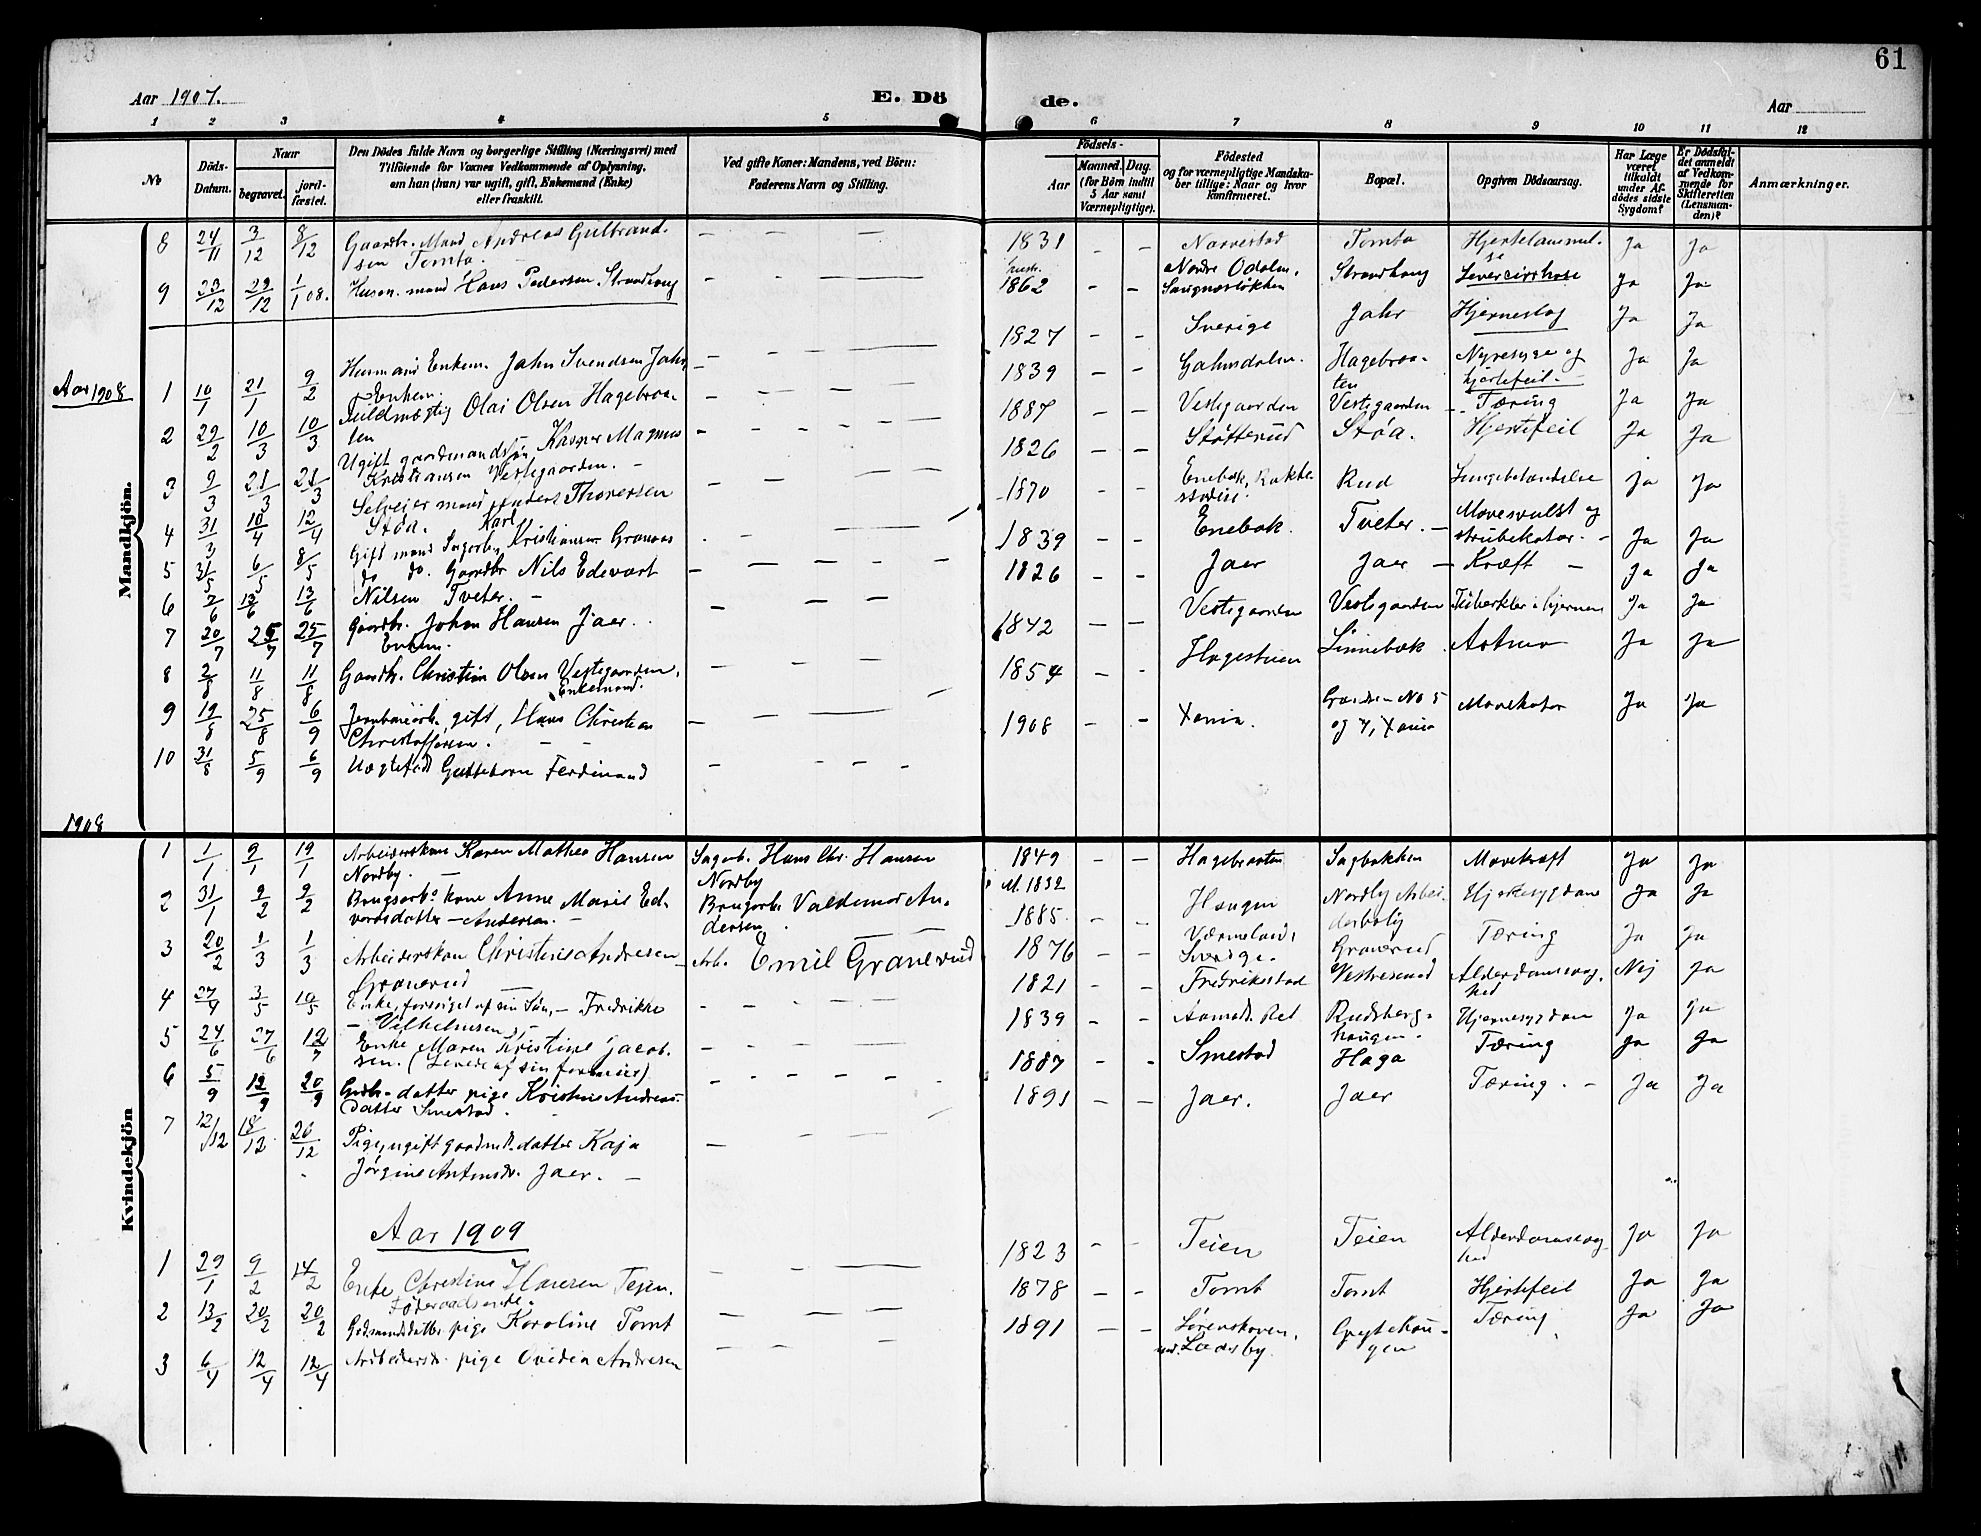 61
Aar 1907.
E. Dö de.
Aar
1 2 3 4 5 6 7 8 9 10 11 12
No
Döds-Datum.
Naar
begravet.
jord-fæstet.
Den Dödes fulde Navn og borgerlige Stilling (Næringsvei) med
Tilföiende for Voxnes Vedkommende af Oplysning,
om han (hun) var ugift, gift, Enkemand (Enke)
eller fraskilt.
Ved gifte Koner: Mandens, ved Börn:
Faderens Navn og Stilling.
Födsels-
Aar
Maaned. Dag.
(for Börn indtil
5 Aar samt
Værnepligtige).
Födested
og for værnepligtige Mandska-
ber tillige: Naar og hvor
konfirmeret.
Bopæl.
Opgiven Dödsaarsag.
Har Læge
været
tilkaldt
under Af-
dödes sidste
Sygdom?
Er Dödsfal-
det anmeldt
af Vedkom-
mende for
Skifteretten
(Lensman-
den)?
Anmærkninger.
Mandkjön.
8 24/11 3/12 8/12 Gaardbr. Mand Andreas Gulbrand-
sen Tomta. — — — 1831 — — Narvestad Tomta Ja Ja
9 23/12 29/12 1/1 08. Husm. mand Hans Pedersen Strandhaug — — — 1862 — — Nordre Odalen, Strandhaug Levercirrhose Ja Ja
1827 — — Sverige Jahr Hjerneslag Ja Ja
Aar 1908 1 10/1 21/1 9/2 Husmand Enkem. Jahn Svendsen Jahr,
Enkem. 1839 — — Hagebraa-
ten Nyresyge og
hjertefeil. Ja Ja
2 29/2 10/3 10/3 Fuldmægtig Olai Olsen Hagebraa-
ten 1887 — — Vestgaarden Vestgaarden Tæring Ja Ja
3 9/3 21/3 21/3 Ugift gaardmandssøn Kasper Magnus
Kristiansen Vestgaarden. — 1826 — — Støtterud Støa. Hjertefeil Ja Ja
4 31/3 10/4 12/4 Selveier mand Anders Thoresen
Støa. 1870 — — Enebak, Rud Lungebetændelse Ja Ja
5 31/5 6/5 8/5 Gift mand Karl Kristiansen
1839 — — Enebak. Tveter. — Mavesvulst og
Ja Ja
6 7/6 13/6 13/6 do do. Gaardbr Nils Edevart
Nilsen Tveter. — 1826 — — Jaer Jaer — Kræft — Ja Ja
7 20/7 25/7 25/7 Gaardbr. Johan Hansen Jaer.
Enkem. 1842 — — Vestgaarden Vestgaarden Tuberkler i hjernen Ja Ja
8 2/8 11/8 11/8 Gaardbr. Christian Olsen Vestgaarden,
Enkemand. 1854 — — Hagestuen Linnebæk Astma Ja Ja
9 19/8 25/8 6/9 gift, Hans Christian
Christoffersen. — — 1908 — — Xania. No 5
og 7, Xania Mavekatar Ja Ja
10 31/8 5/9 6/9 Uægtefødt Guttebarn Ferdinand
1908
Kvindekjön
1 1/1 9/1 19/1 Arbeiderskone Karen Mathea Hansen
Nordby. — Sagarb. Hans Chr. Hansen
Nordby 1849 — — Hagebraaten Sagbakken Mavekræft Ja Ja
2 31/1 9/2 9/2 Brugsarbs kone Anne Marie Ed-
vardsdatter — Andersen. — Brugsarb. Valdemar An-
dersen. M. 1832
1885 — — Haugen Nordby Arbei-
derbolig Hjertesygdom Ja Ja
3 20/2 1/3 1/3 Arbeiderskone Christine Andresen
Granerud — Arb. Emil Granerud 1876 — — Værmeland,
Sverige. Granerud Tæring Ja Ja
4 27/4 3/5 10/5 Enke, forsørget af sin Søn, — Fredrikke
— Vilhelmsen, — 1821 — — Fredrikstad Alderdomssvag-
hed Nej Ja
5 24/6 27/6 12/7 Enke Maren Kristine Jacob-
sen. (Levede af sin formue). 1839 — — Rudsberg-
haugen. Hjernesygdom Ja Ja
6 5/9 12/9 20/9 Gdbr. datter pige Kristine Andreas-
datter Smestad. 1887 — — Smestad Haga Tæring Ja Ja
7 12/12 18/12 26/12 Pige, ugift gaardmds. datter Kaja
Jørgine Antonsdr. Jaer. — 1891 — — Jaer. Jaer Tæring. — Ja Ja
Aar 1909
1 29/1 9/2 14/2 Enke Christine Hansen Tejen.
Føderaadsenke. 1823 — — Teien Teien Alderdomssvag-
hed Ja Ja
2 13/2 20/2 20/2 Gdmandsdatter pige Karoline Tomt 1878 — — Tomt Tomt Hjertefeil Ja Ja
3 6/4 12/4 12/4 Arbeidersdr. pige Ovidia Andresen 1891 — — Sørenskoven,
Ladeby. Tæring Ja Ja